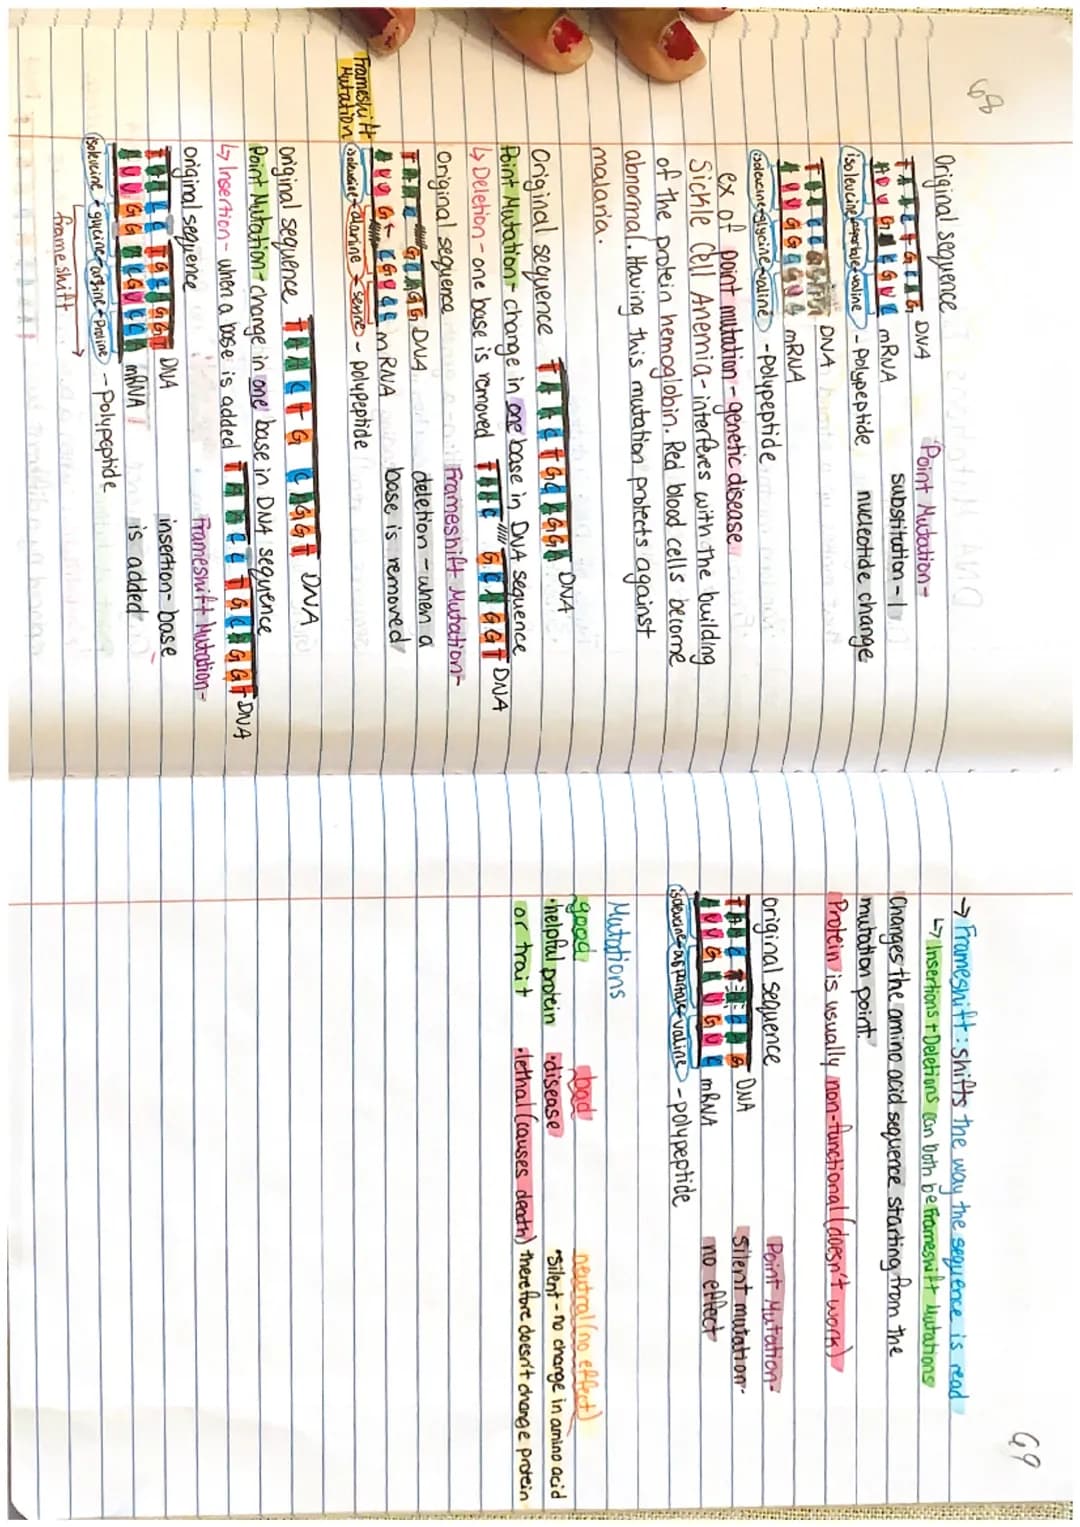 68
Original sequence
TAACTGCAG DNA
AUUGACGUC mRNA
isoleucine-aspartate-valine - Polypeptide
Point Mutation-
substitution-1
nucleotide change
DNA
AUUGGCGUC mRNA
isoleucine-glycine-valine - polypeptide
ex of point mutation-genetic disease
Sickle Cell Anemia-interferes with the building
of the protein hemoglobin. Red blood cells become
abnormal. Having this mutation protects against
malaria.
Original sequence TAACTGCAGGT DNA
Point Mutation-change in one base in DNA sequence
↳ Deletion-one base is removed TAAC GCAGGT DNA
Original sequence
TAAC GCAGG DNA
AUUG CGUCC mRNA
isoleucine-alanine - - polypeptide
Frameshift
Mutation
Frameshift Mutation-
deletion-when a
base is removed
Original sequence TAACTG CAGGT DNA
Point Mutation-change in one base in DNA sequence
↳ Insertion-when a base is added TAACCTGCAGGT DNA
original sequence
TAACCTGCAGGT DNA
AUUGGACGUCCA mRNA
isoleucine-glycine- -Proline - polypeptide
frame shift
Frameshift Mutation-
insertion-base
is added
69
→ Frameshift: shifts the way the sequence is read
↳ Insertions + Deletions can both be Frameshift Mutations
Changes the amino acid sequence starting from the
mutation point.
Protein is usually non-functional (doesn't work)
original sequence
DNA
AUUGAUGUC mRNA
isoleucine-aspartate-valine - polypeptide
Point Mutation-
Silent mutation-
no effect
Mutations
good
•helpful protein
or trait
bad
•disease
•lethal (causes death)
neutral (no effect)
•Silent-no change in amino acid
therefore doesn't change protein